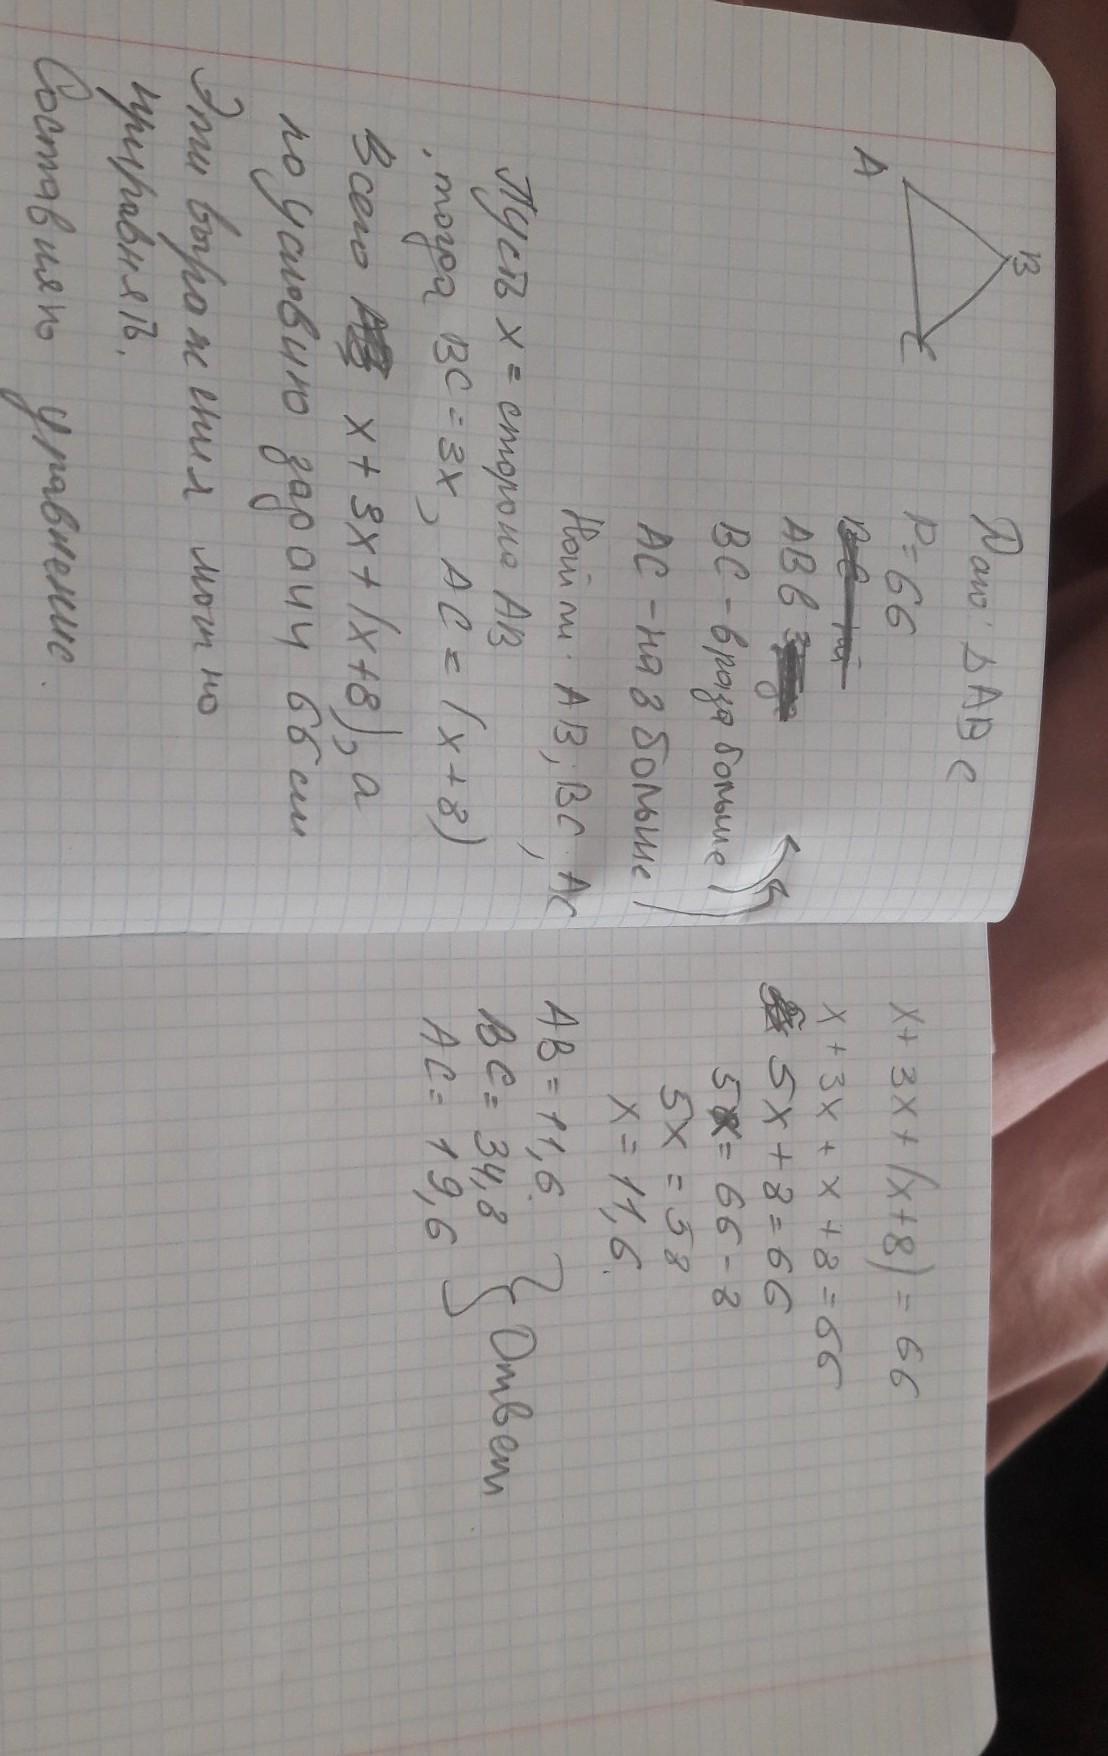 B
A
C
Дано: ΔABC
P=66
AB в
BC - в раза больше
AC - на 8 больше
Найти: AB; BC; AC
Пусть x = сторона AB,
тогда BC = 3x, AC = (x+8)
Всего x + 3x + (x+8), а
по условию задачи 66 см
Эти выражения можно
приравнять.
Составляю уравнение.
x + 3x + (x+8) = 66
x + 3x + x + 8 = 66
5x + 8 = 66
5x = 66 - 8
5x = 58
x = 11,6.
AB = 11,6.
BC = 34,8
AC = 19,6
Ответ